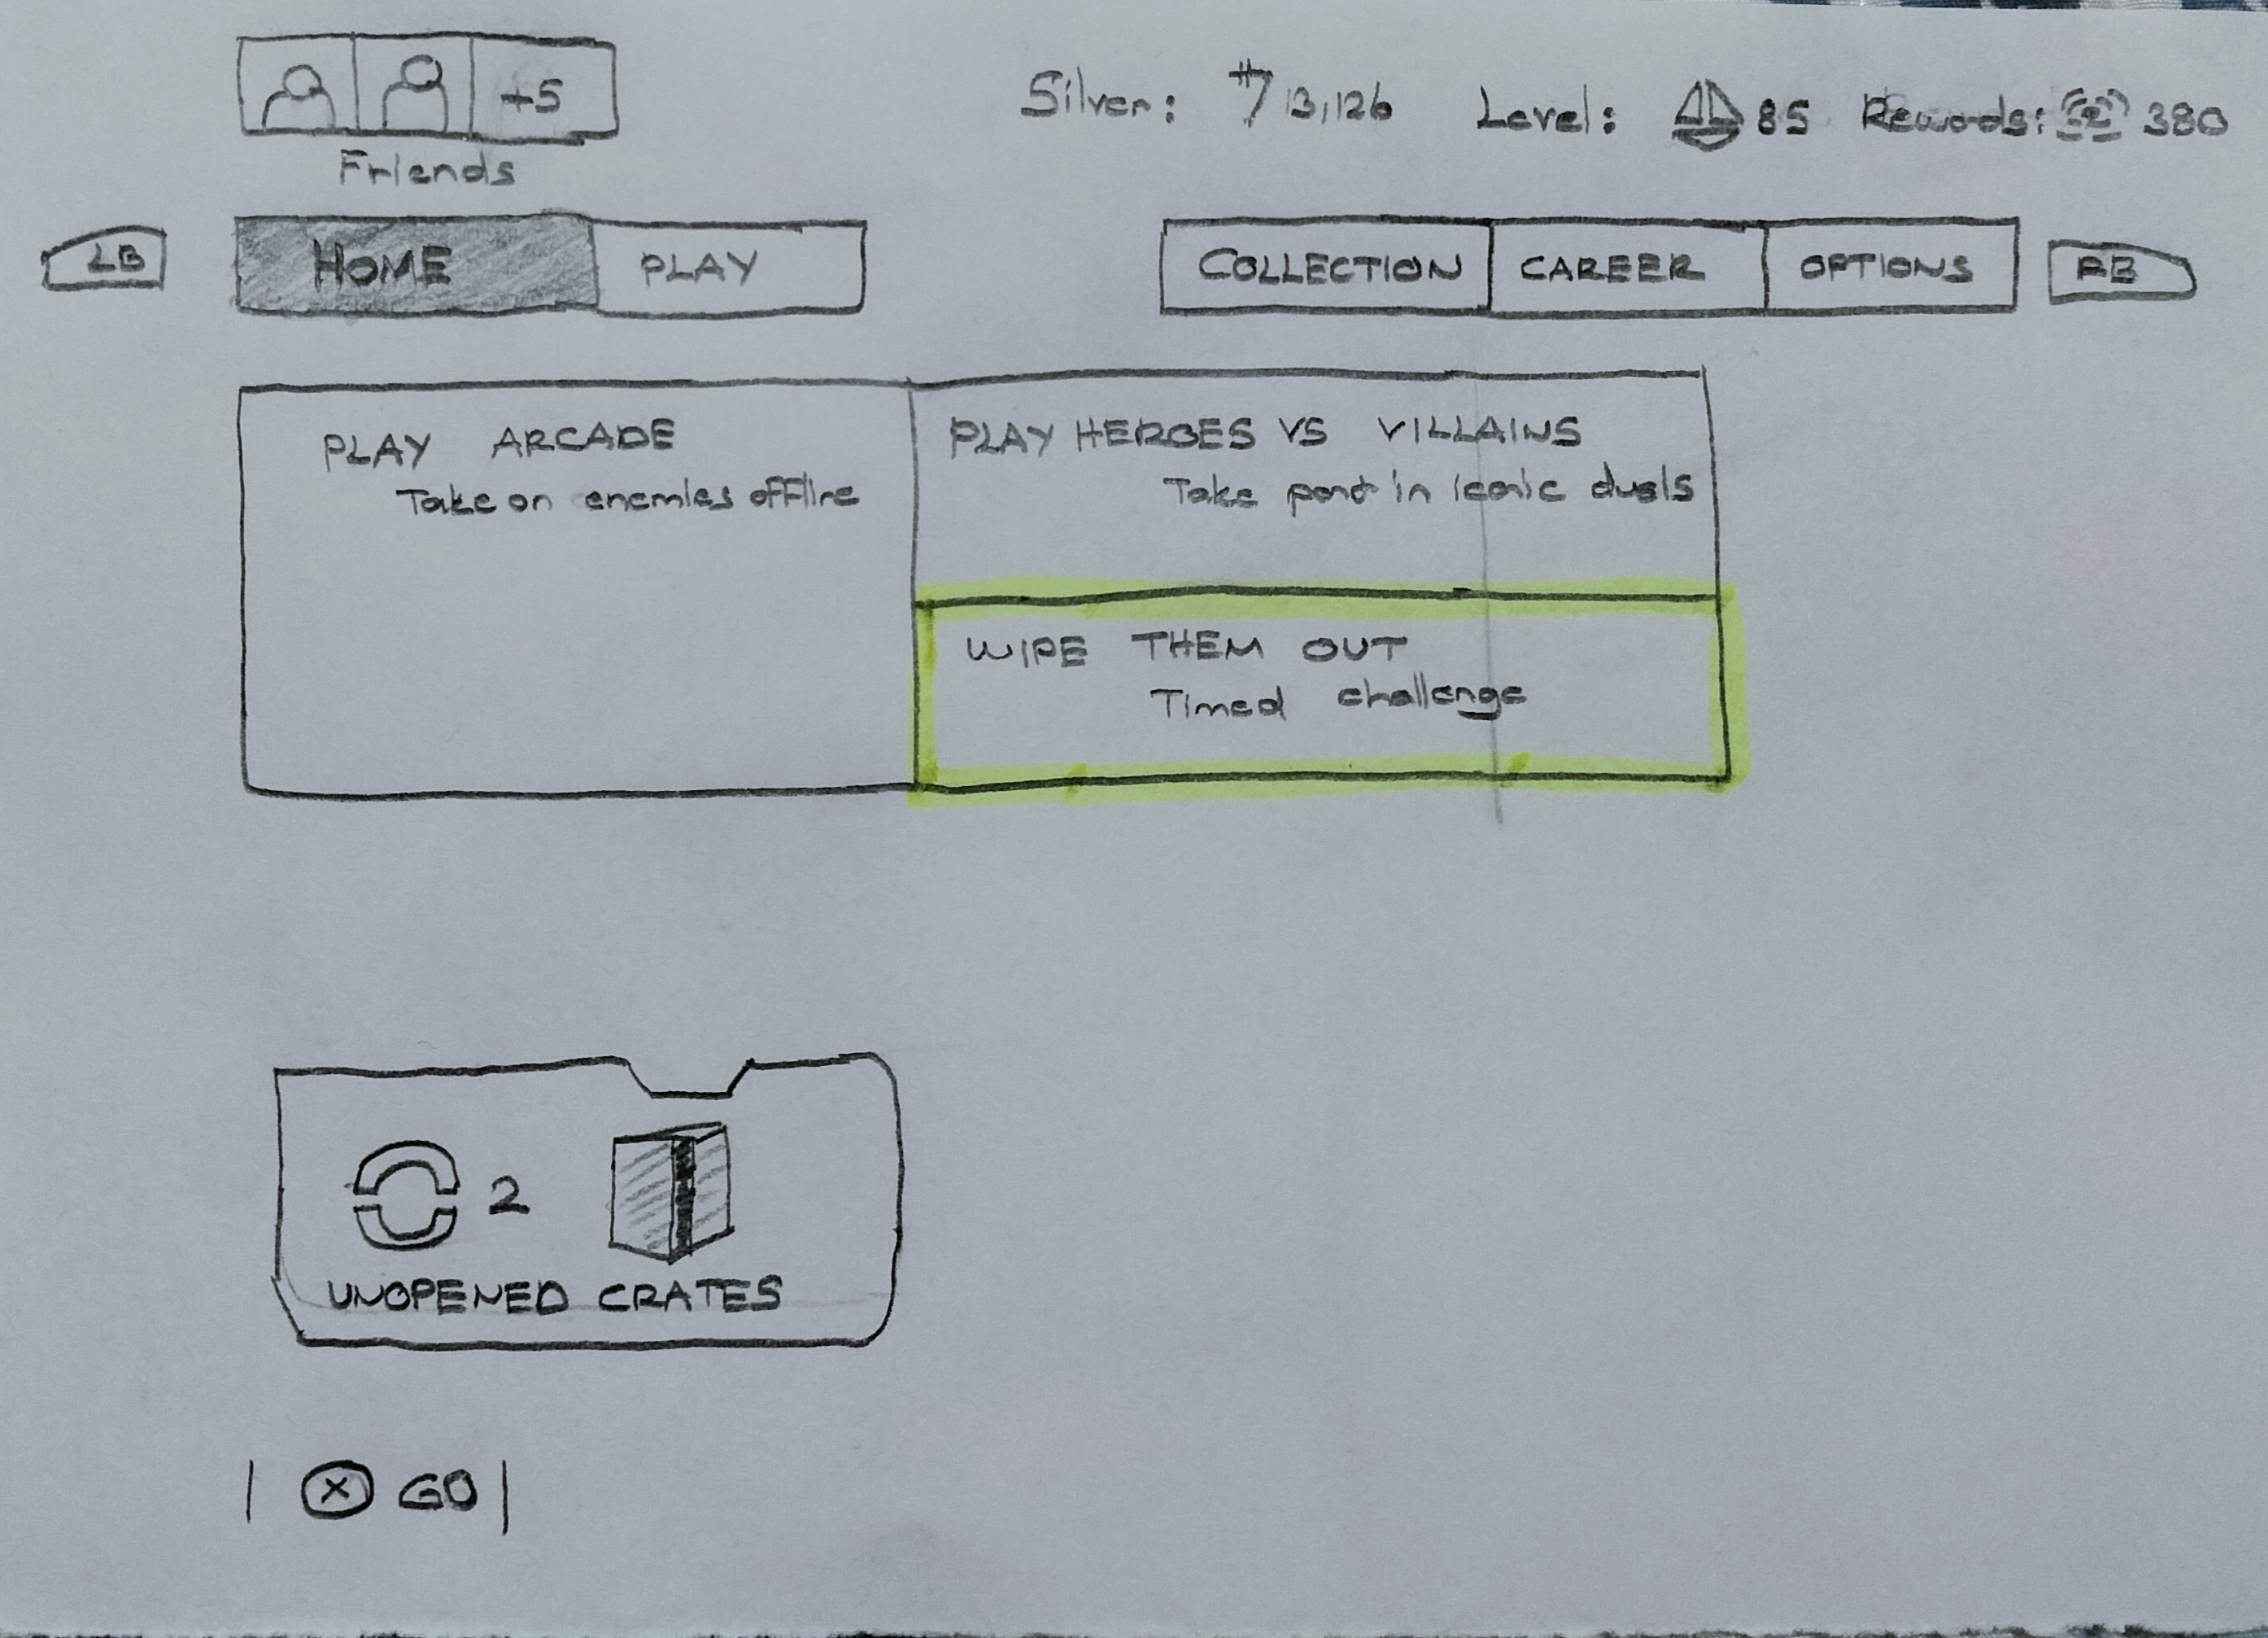 +5
Friends
Silver: 13,126 Level: 85 Rewards: 380
LB HOME PLAY COLLECTION CAREER OPTIONS RB
PLAY ARCADE
Take on enemies offline
PLAY HEROES VS VILLAINS
Take part in iconic duels
WIPE THEM OUT
Timed challenge
2
UNOPENED CRATES
X GO